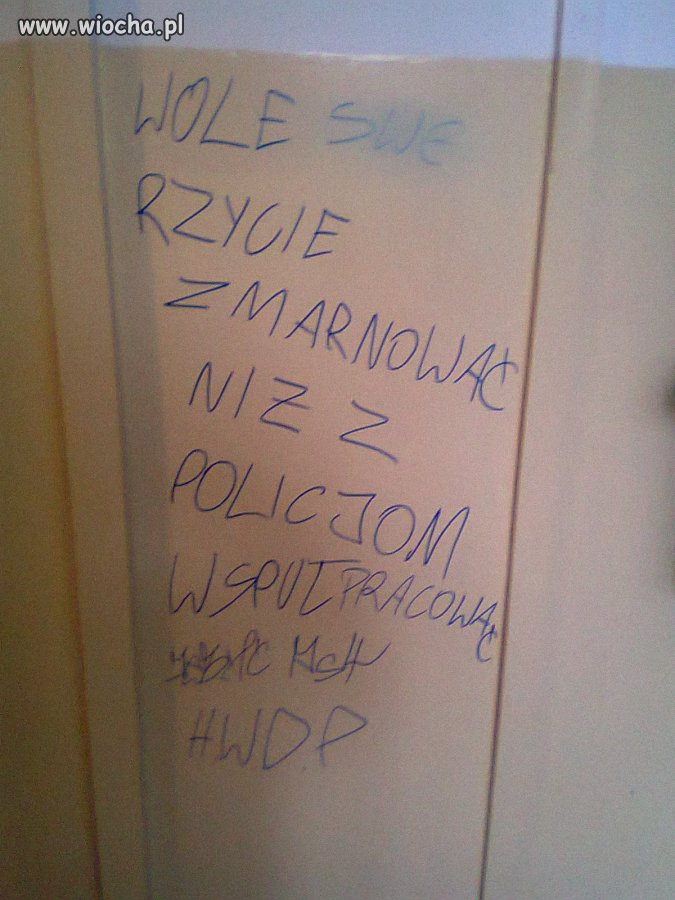 www.wiocha.pl
WOLE SWE
RZYCIE
ZMARNOWAĆ
NIŻ Z
POLICJOM
WSPUŁPRACOWAĆ
HWDP